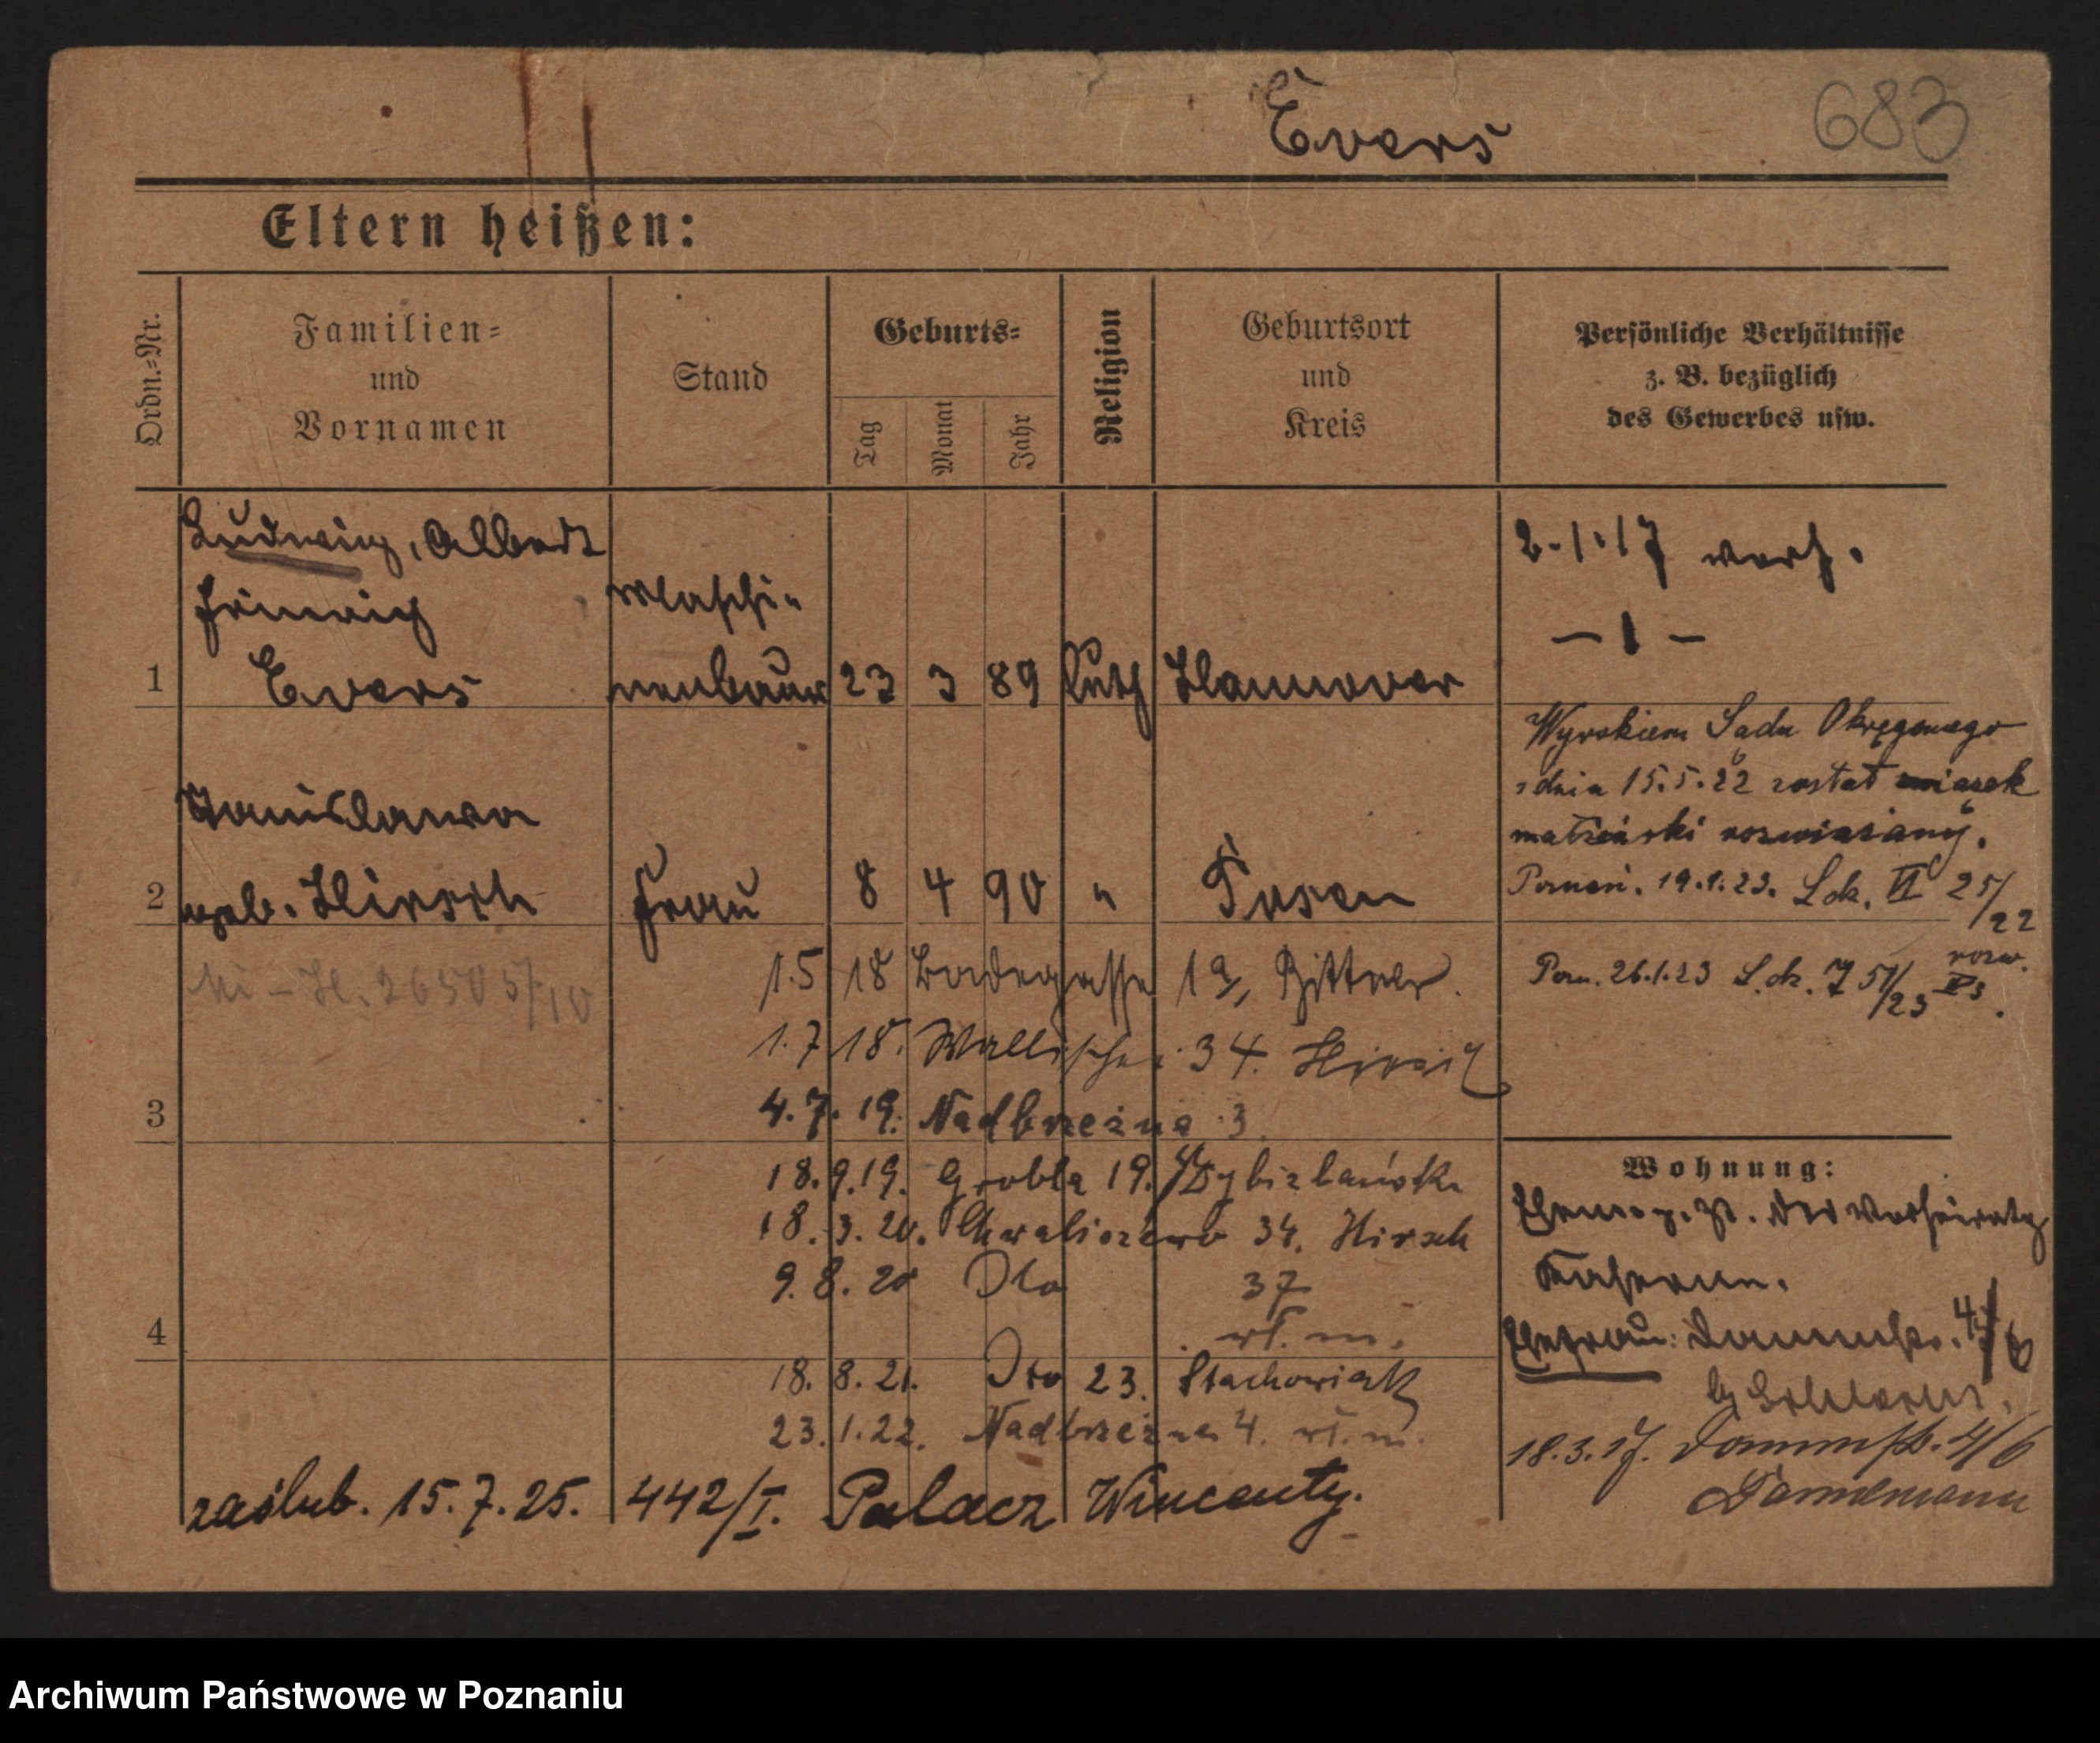 683
Evers
Eltern heißen:
Ordn.-Nr.
Familien-
und
Vornamen
Stand
Geburts-
Tag
Monat
Jahr
Religion
Geburtsort
und
Kreis
Persönliche Verhältnisse
z. B. bezüglich
des Gewerbes usw.
Ludwig, Albert
Heinrich
1 Evers
Maschi-
nenbauer 23 3 89 luth Hannover
2.1.17 verh.
– 1 –
Stanislawa
2 geb. Hirsch Frau 8 4 90 " Posen
Wyrokiem Sądu Okręgowego
z dnia 15.5.22 został związek
małżeński rozwiązany.
Poznań. 19.1.23. L.dz. VI 25/22
Pozn. 26.1.23 L.dz. 751/23 rozw.
26505/10
1.5 18 Badegasse 19, Bittner.
1.7 18. Wallischei 34. Hirsch
3
4.7.19. Nadbrzeżna 3
18.9.19. Grobla 19.
18.3.20. Chwaliszewo 34. Hirsch
9.8.20 Dto 37
4
18.8.21. Dto 23. Stachowiak
23.1.22. Nadbrzeżna 4.
zaślub. 15.7.25. 442/I. Palacz Wincenty.
Wohnung:
Ehem. z. Zt.
Kaserne.
Ehefrau: Dammstr. 4/6
18.3.17. Dammstr. 4/6
Dannemann
Archiwum Państwowe w Poznaniu